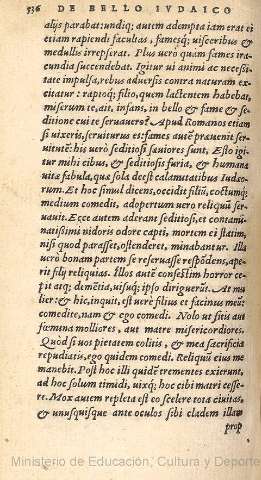 536 DE BELLO IVDAICO
alijs parabat: undiq; autem adempta iam erat ei
etiam rapiendi facultas, famesq; uisceribus &
medullis irrepserat. Plus uerò quàm fames ira-
cundia succendebat. Igitur ui animi ac necessi-
tate impulsa, rebus aduersis contra naturam ex-
citatur: raptoq; filio, quem lactentem habebat,
miserum te, ait, infans, in bello & fame & sedi-
tione cui te seruauero? Apud Romanos etiam
si uixeris, seruiturus es: fames autē præuenit ser-
uitutē: his uerò seditiosi sæuiores sunt, Esto igi-
tur mihi cibus, & seditiosis furia, & humanæ
uitæ fabula, quæ sola deest calamitatibus Iudæo-
rum. Et hoc simul dicens, occidit filiū, coctumq;
medium comedit, adopertum uero reliquū ser-
uauit. Ecce autem aderant seditiosi, et contami-
natissimi nidoris odore capti, mortem ei statim,
nisi quod parasset, ostenderet, minabantur. Illa
uerò bonam partem se reseruasse respōdens, ape-
rit filij reliquias. Illos autē confestim horror ce-
pit atq; dementia, uisuq; ipso diriguerūt. At mu-
lier: & hic, inquit, est uerè filius et facinus meū:
comedite, nam & ego comedi. Nolo ut sitis aut
fœmina molliores, aut matre misericordiores.
Quòd si uos pietatem colitis, & mea sacrificia
repudiatis, ego quidem comedi. Reliquū eius me
manebit. Post hoc illi quidē trementes exierunt,
ad hoc solum timidi, uixq; hoc cibi matri cesse-
re. Mox autem repleta est eo scelere tota ciuitas,
& unusquisque ante oculos sibi cladem illam
prop
Ministerio de Educación, Cultura y Deporte